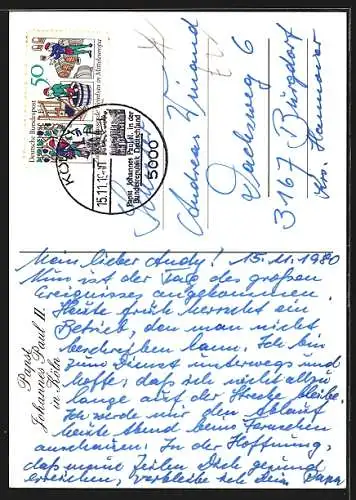 Deutsche Bundespost
50
KÖLN
15.11.80
Papst Johannes Paul II. in der
Bundesrepublik Deutschland
5000
Andreas Winand
Dachsweg 6
3167 Burgdorf
Krs. Hannover
Papst
Johannes Paul II.
in Köln
Mein lieber Andy! 15.11.1980
Nun ist der Tag des großen
Ereignisses angekommen.
Heute früh herrscht ein
Betrieb, den man nicht
beschreiben kann. Ich bin
zum Dienst unterwegs und
hoffe, daß ich nicht allzu
lange auf der Strecke bleibe.
Ich werde mir den Ablauf
heute Abend beim Fernsehen
anschauen. In der Hoffnung,
daß meine Zeilen Dich gesund
erreichen, verbleibe ich Dein Papa